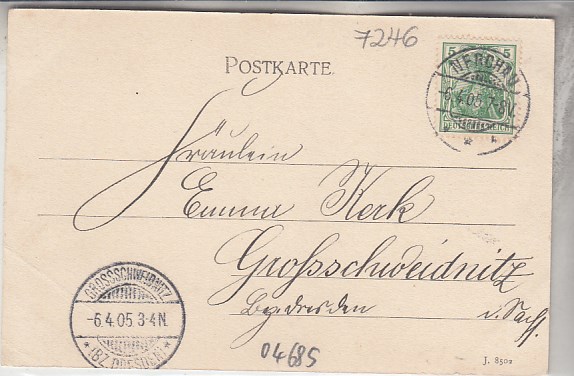 7246
POSTKARTE.
5 5
NERCHAU
-6.4.05.7-8V.
DEUTSCHES REICH
Fräulein
Emma Kerk
Grossschweidnitz
Bez. Dresden
i. Sachs.
GROSSCHWEIDNITZ
-6.4.05 3-4N.
* (BZ. DRESDEN) *
04685
J. 8502